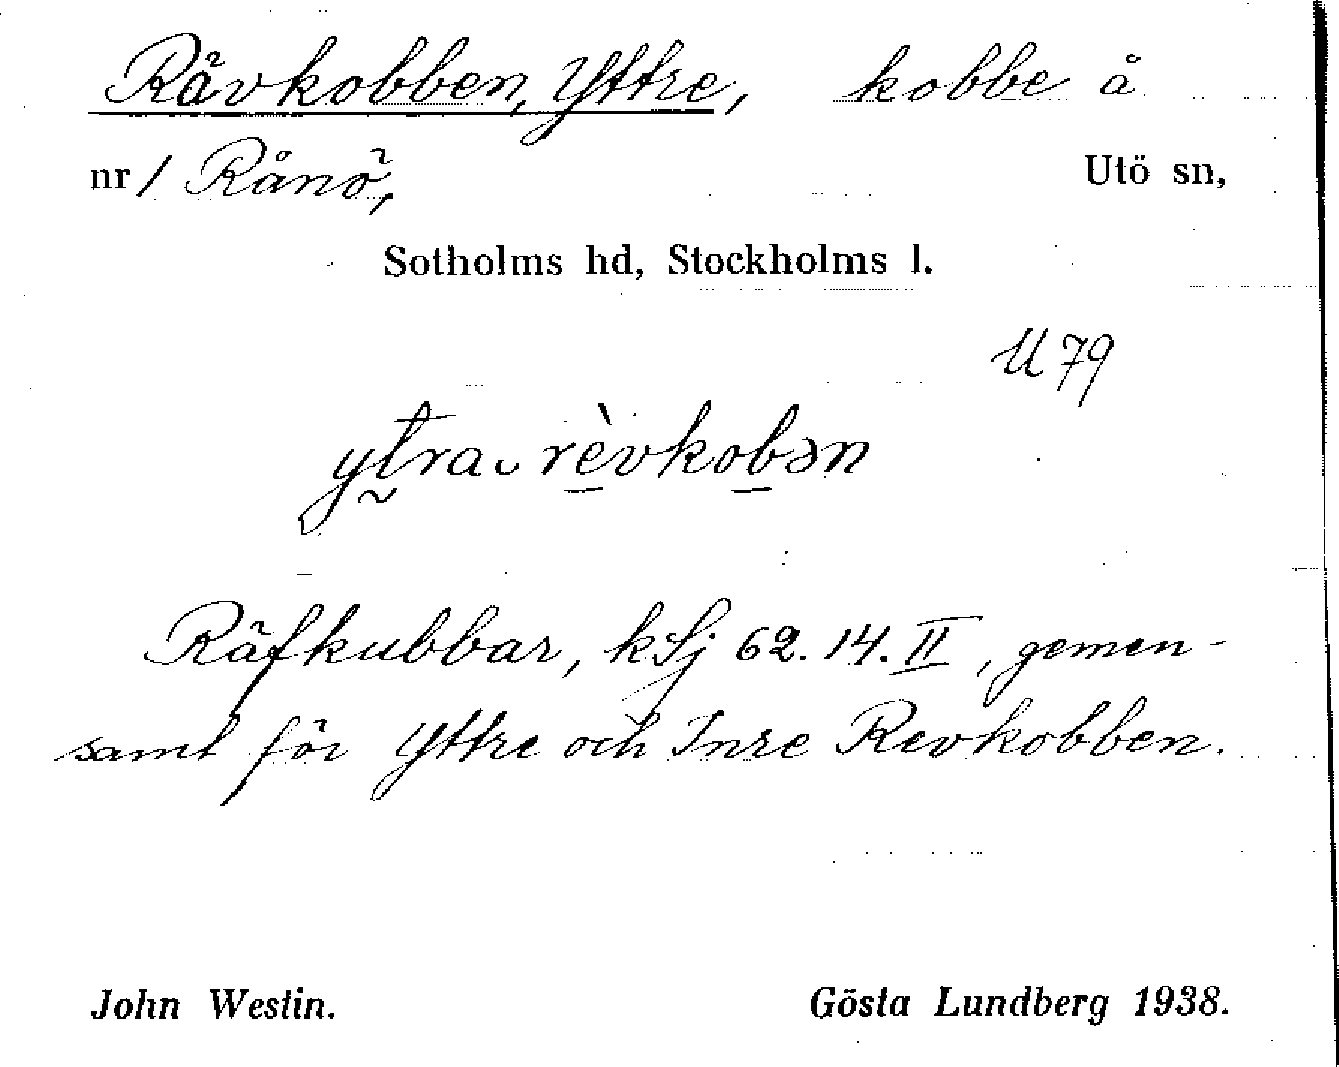 Rävkobben, Yttre, kobbe å
nr 1 Rånö, Utö sn,
Sotholms hd, Stockholms l.
U 79
ytra rèvkobən
Räfkubbar, kSj 62.14.II, gemen-
samt för Yttre och Inre Revkobben.
John Westin. Gösta Lundberg 1938.